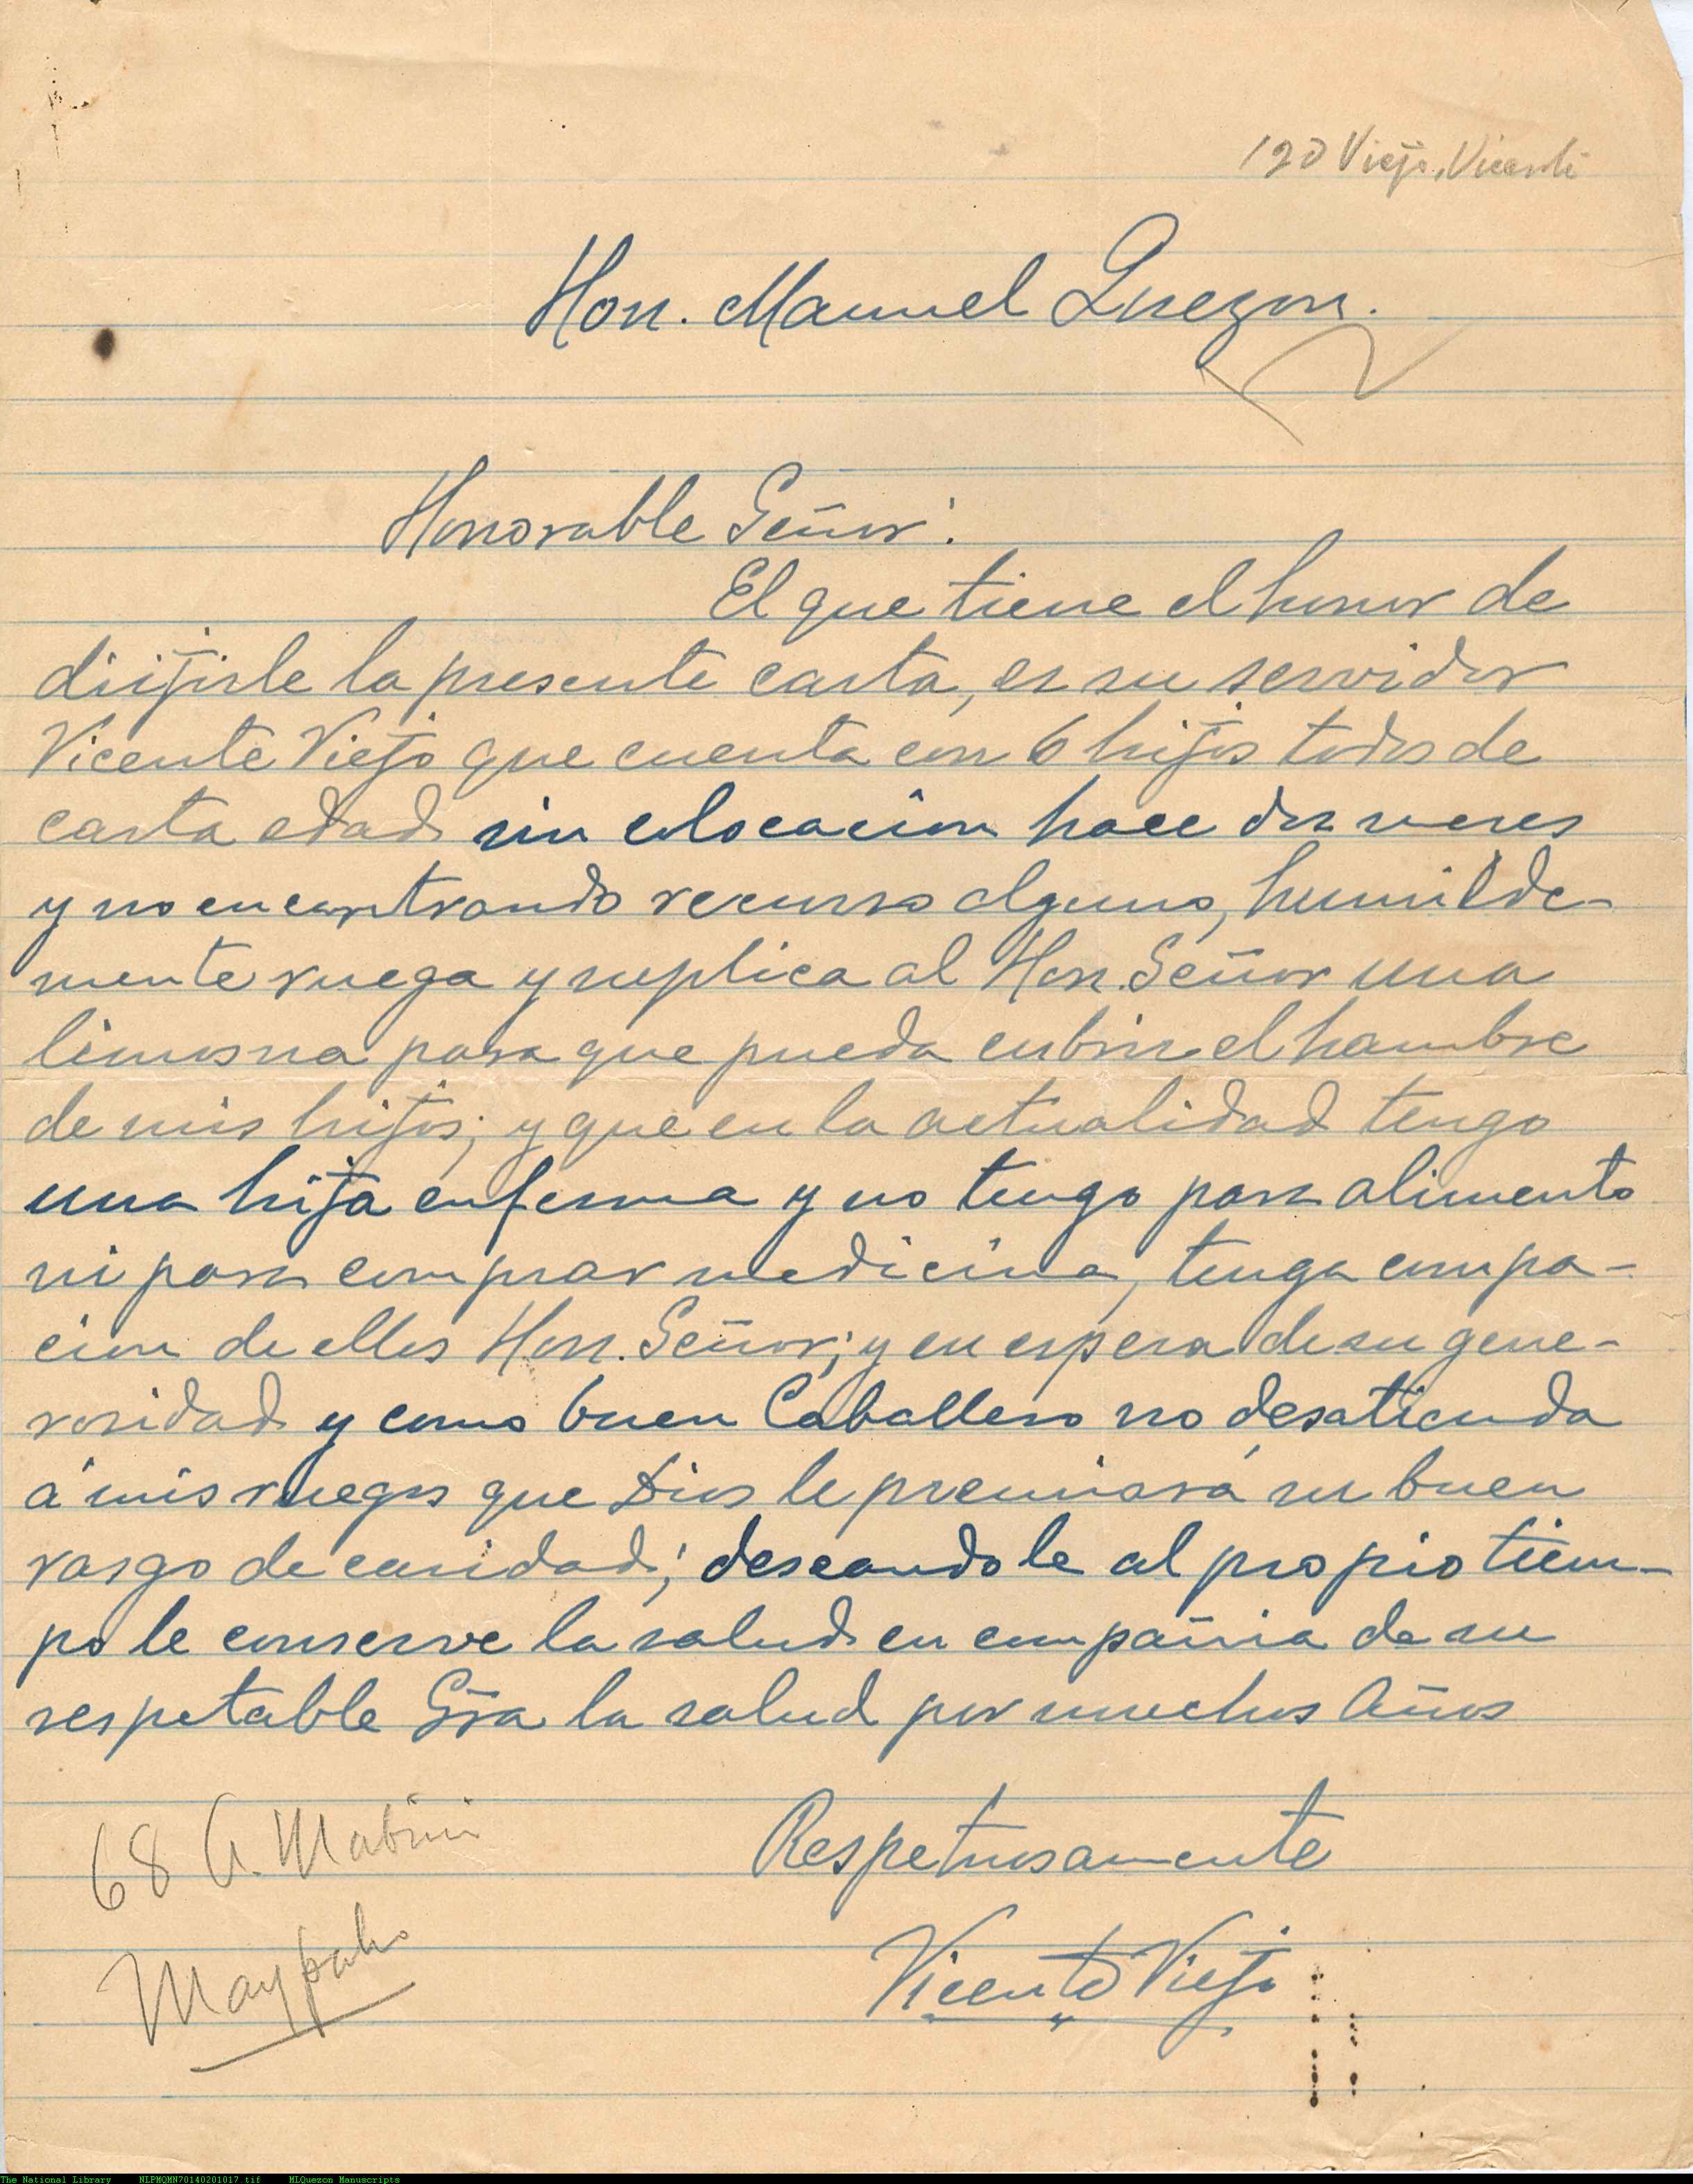 120 Viejo, Vicente
Hon. Manuel Quezon.
Honorable Señor:
El que tiene el honor de
dirijirle la presente carta, es su servidor
Vicente Viejo que cuenta con 6 hijos todos de
corta edad sin colocacion hace dos meses
y no encontrando recurso alguno, humilde-
mente ruega y suplica al Hon. Señor una
limosna para que pueda cubrir el hambre
de mis hijos; y que en la actualidad tengo
una hija enferma y no tengo para alimento
ni para comprar medicina, tenga compa-
cion de ellos Hon. Señor; y en espera de su gene-
rosidad y como buen Caballero no desatienda
á mis ruegos que Dios le premiará su buen
rasgo de caridad; deseandole al propio tiem-
po le conserve la salud en compañia de su
respetable Sra la salud por muchos Años
Respetuosamente
Vicente Viejo
68 A. Mabini
Maypaho
The National Library NLPMQMN70140201017.tif MLQuezon Manuscripts